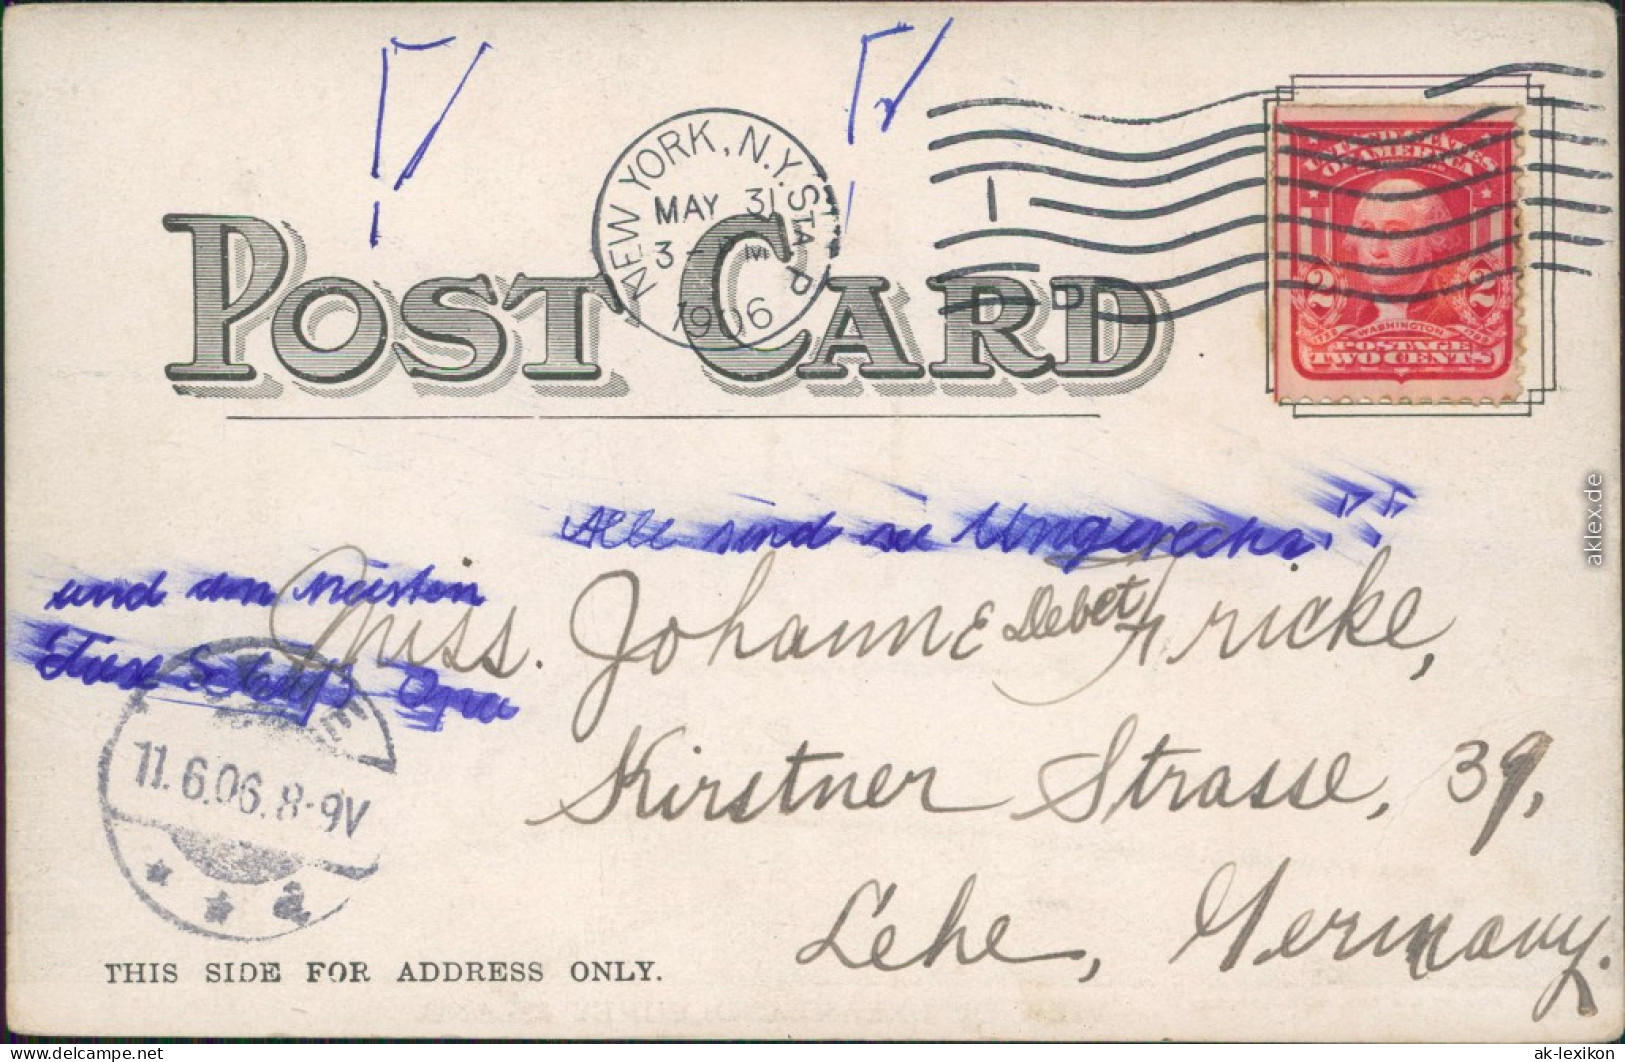 NEW YORK, N.Y. STA. P
MAY 31
3- PM
1906
1 D
UNITED STATES
OF AMERICA
2 2
WASHINGTON
POSTAGE
TWO CENTS
POST CARD
Alle sind
und
Miss. Johanne Debet Fricke,
Kirstner Strasse, 39,
Lehe, Germany.
11.6.06.8-9V
* * a
THIS SIDE FOR ADDRESS ONLY.
aklex.de
www.delcampe.net
ak-lexikon